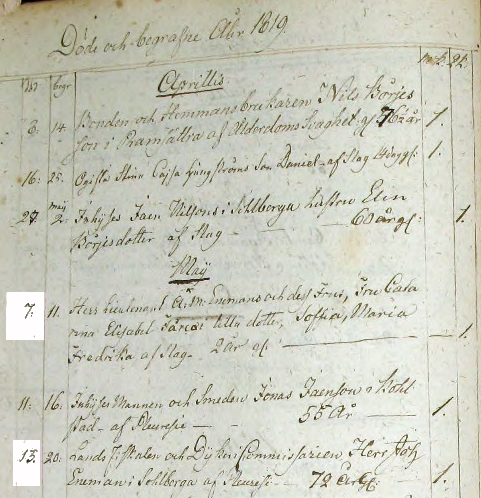 Döde och begrafne Åhr 1819.
begr
Aprillis
3. 14. Bonden och Hemmansbrukaren Nils Börjes
son i Framsättra af Ålderdoms Svaghet. gl 76 2 år 1.
16: 25. Ogifta Stina Cajsa Ljungströms Son Daniel af Slag 1.
maij
27. 2. Inhyses Jaen Nilsons i Sohlberga hustro Elin
Börjesdotter af Slag — 60 år gl: 1.
Maij
7: 11. Herr Lieutenant Enemans och dess Frus, Fru Catha
rina Elisabet lilla dotter, Soffia, Maria
Fredrika af Slag — 2 år gl. 1.
11: 16: Inhyses Mannen och Smeden Jonas Jaenson i Kohl
stad — af Pleuresie — 55 år 1.
13. 20: Lands Fiskalen och Herr Joh
Eneman i Sohlberga af Pleuresi — 72 år gl: 1.